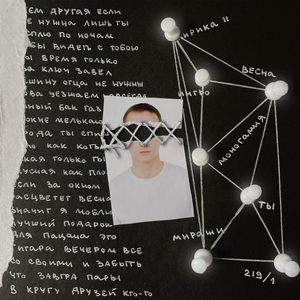 ем другая если
е нужна лишь ты
сплю по ночам
бы видеть с тобою
ы время только
а ключ завел
ашину отца не нужны
ва уезжаем
ный бак газ
окие мелька
ода ты спи
ю как коть
кая только ты
усная как пло
если за окном
расцветет весна
значит я моблю
лучший подарок
для пацана это
гитара вечером все
со своими и забыть
что завтра пары
в кругу друзей кто-то
лирика II
интро
весна
моногамия
ты
миражи
219/1